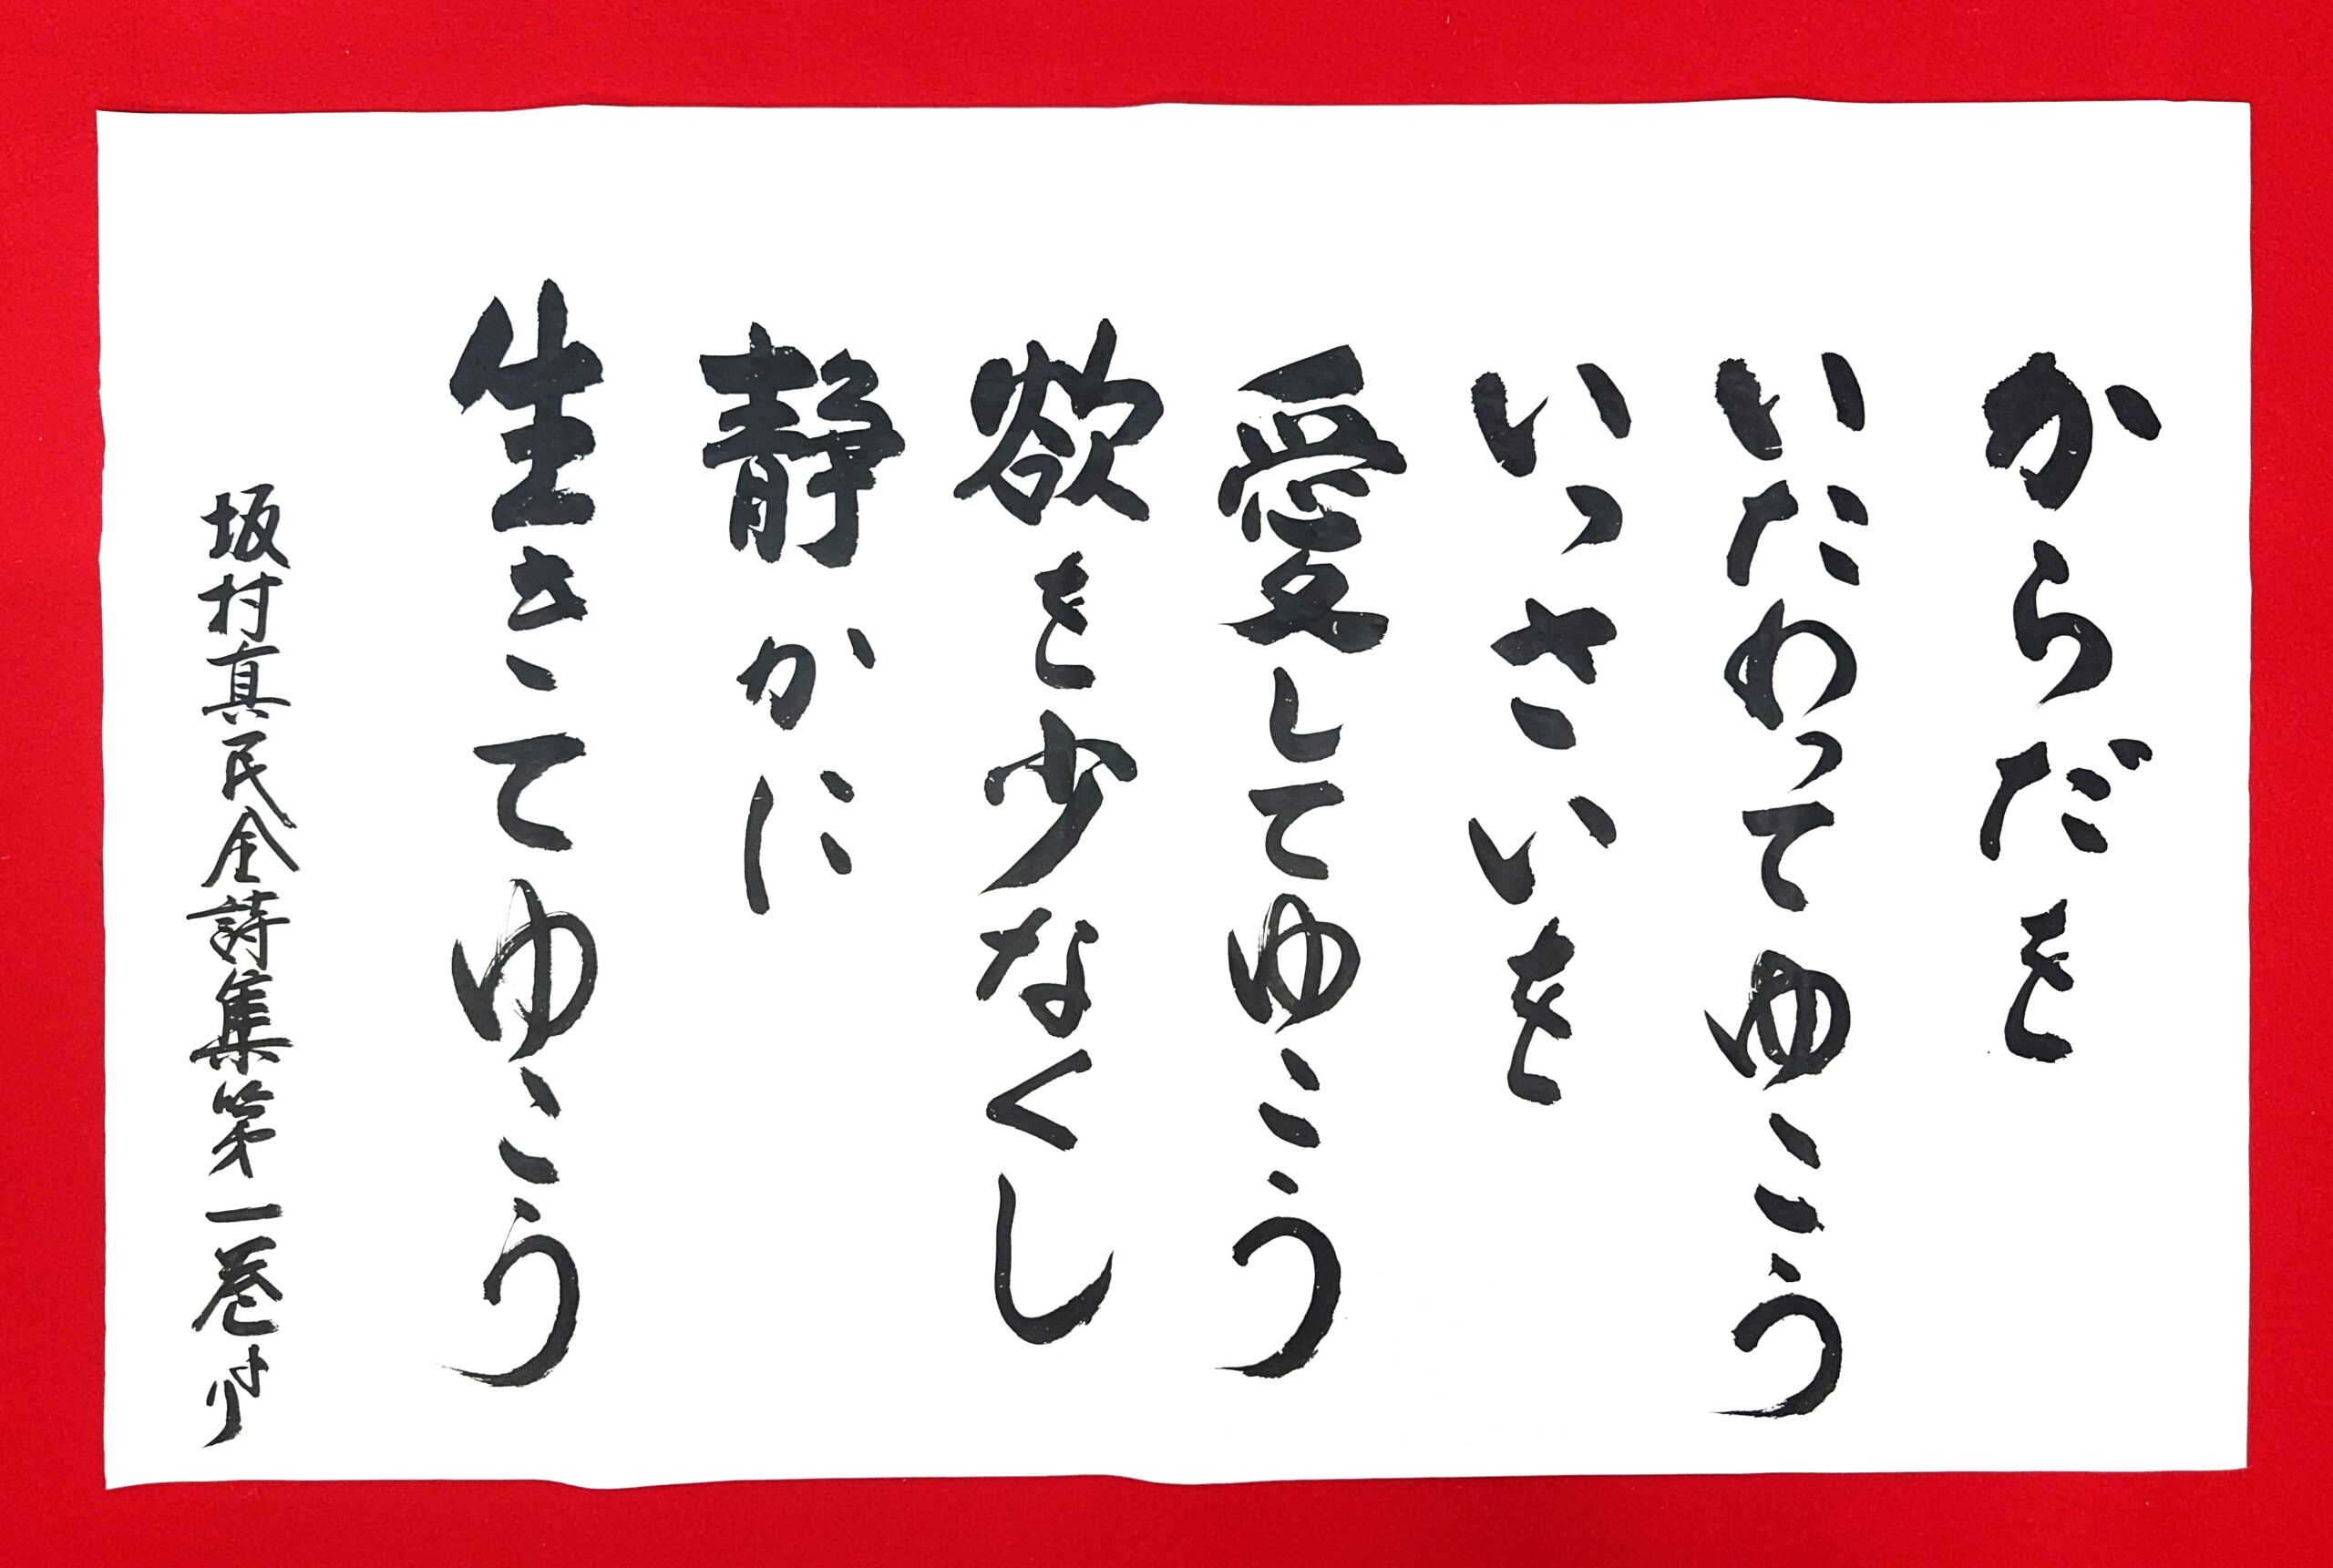 からだを
いたわってゆこう
いっさいを
愛してゆこう
欲を少なくし
静かに
生きてゆこう
坂村真民全詩集第一巻より